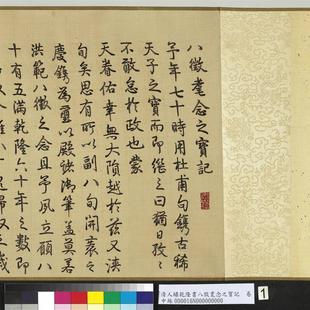 八徵耄念之寶記
予年七十時用杜甫句鐫古稀
天子之寶而即繼之曰猶日孜〻
不敢怠於政也蒙
天眷佑幸無大隕越於茲又浹
旬矣思有所以副八旬開袠之
慶鐫為璽以殿諸御筆蓋莫若
洪範八徵之念且予夙立願八
十有五滿乾隆六十年之數即
清人緙乾隆書八徵耄念之寶記 卷
中絲000016N000000000
1